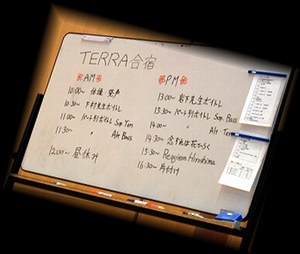 TERRA合宿
※AM※
10:00~ 体操 発声
10:30~ 下村先生ボイトレ
11:00~ パート別ボイトレ Sop Ten
11:30~ 〃 Alt Bass
12:00~ 昼休み
※PM※
13:00~ 岩下先生ボイトレ
13:30~ パート別ボイトレ Sop Bass
14:00~ 〃 Alt Ten
14:30~
15:30~ Requiem Hiroshima
16:30~ 片付け